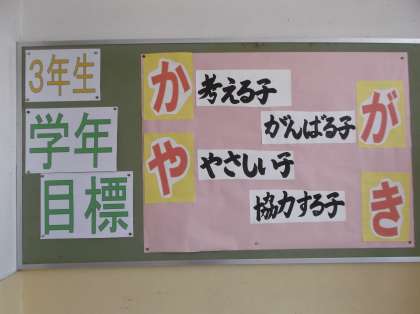 3年生
学年
目標
か
考える子
が
がんばる子
や
やさしい子
き
協力する子